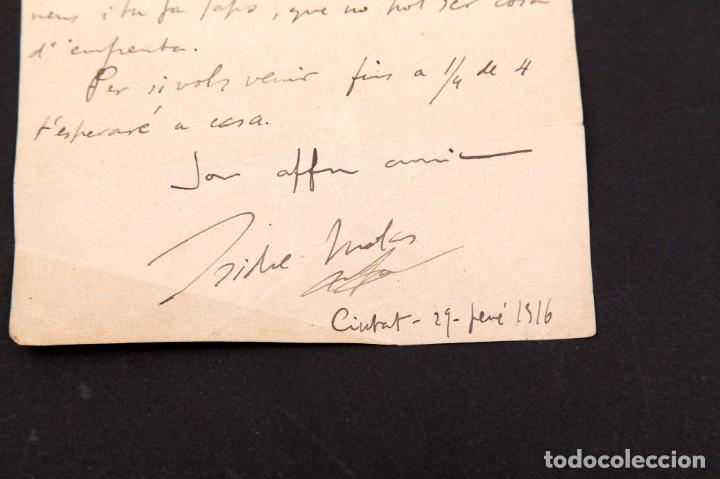 que no pot ser cosa
d'emprenta.
Per si vols venir fins a 1/4 de 4
t'esperaré a casa.
Ton affm amic
Isidre
Ciutat - 29 - 1916
todocoleccion